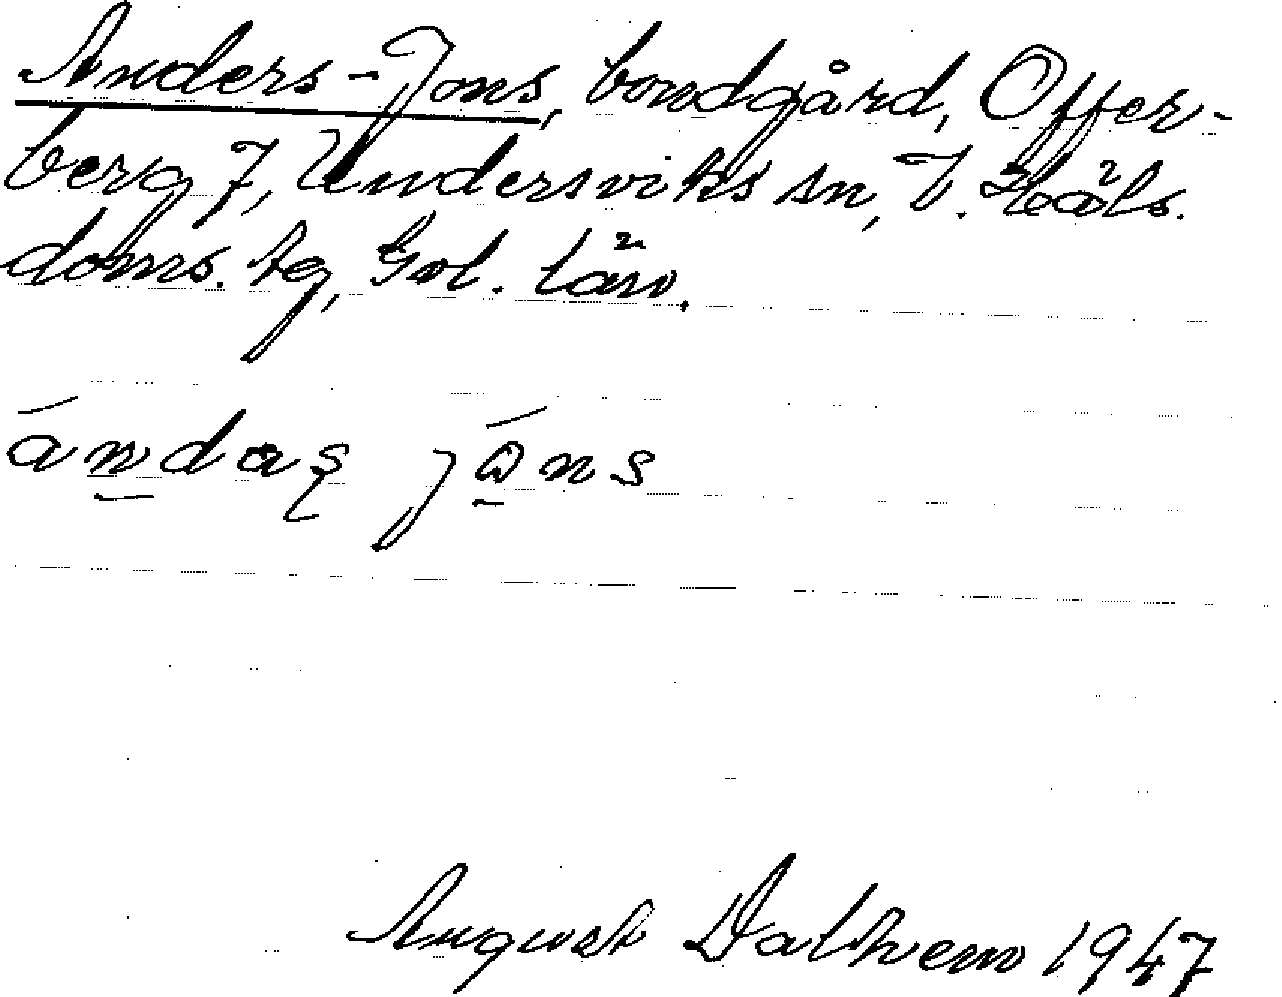 Anders-Jons, bondgård, Offer-
berg 7, Undersviks sn, V. Häls.
doms. tg, Gvl. län.
August Dalhem 1947